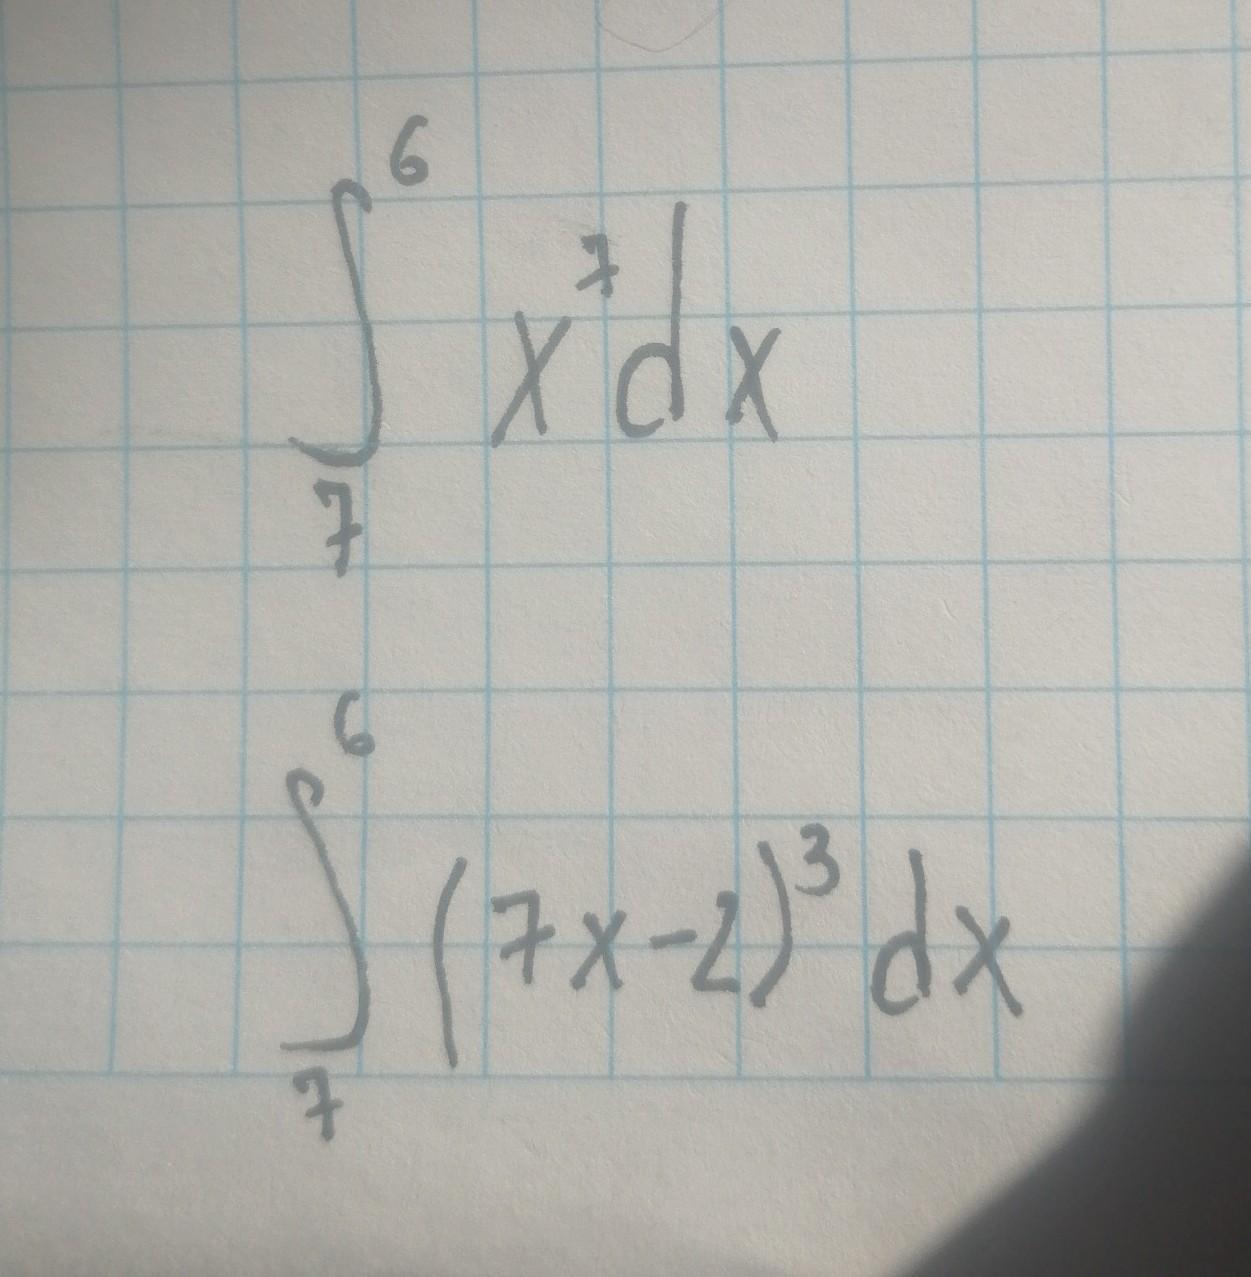 ∫₇⁶ x⁷dx
∫₇⁶ (7x-2)³ dx